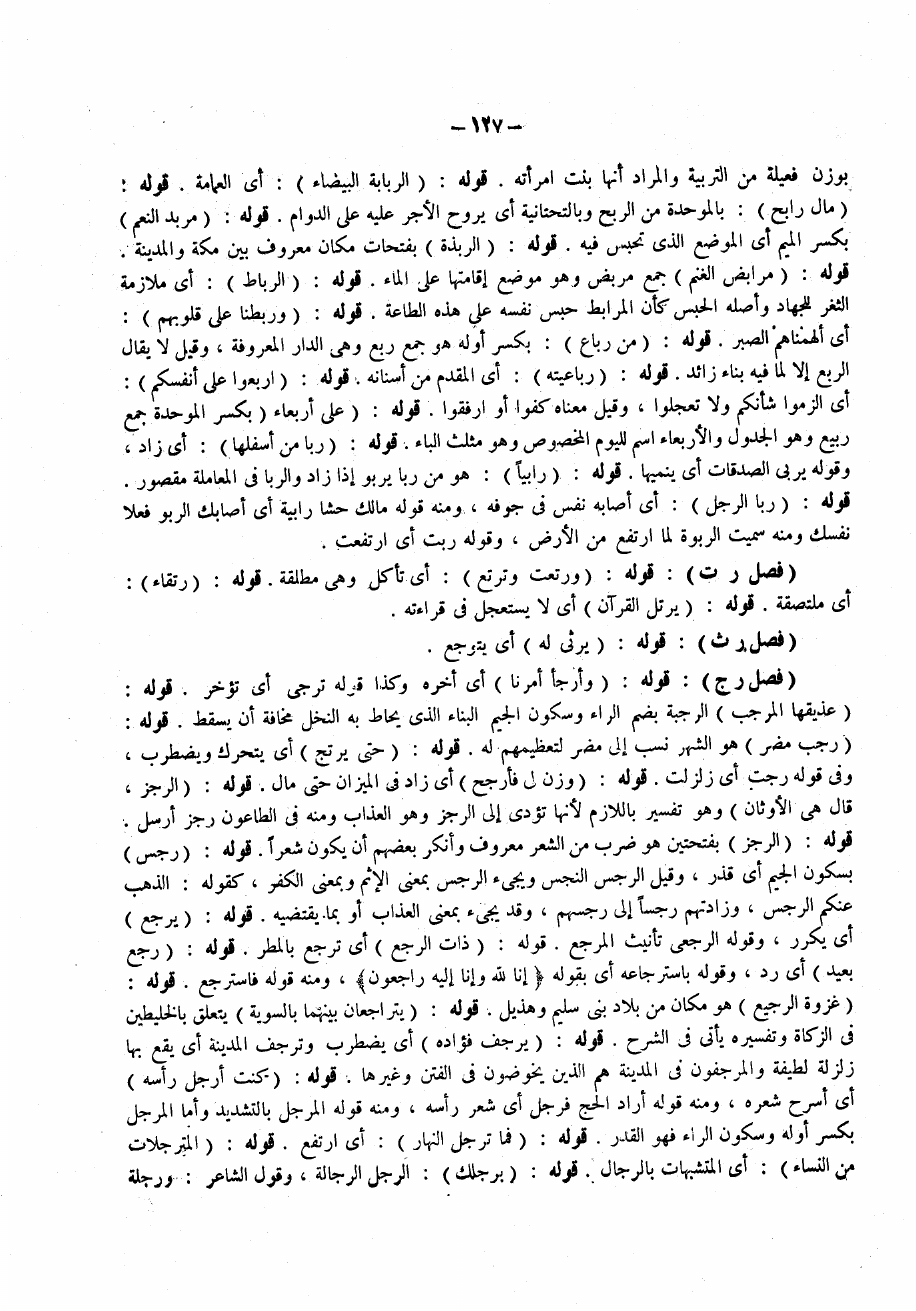 – ١٢٧ –
بوزن فعيلة من التربية والمراد أنها بنت امرأته . قوله : ( الربابة البيضاء ) : أى العامة . قوله :
( مال رابح ) : بالموحدة من الربح وبالتحتانية أى يروح الأجر عليه على الدوام . قوله : ( مربد النعم )
بكسر الميم أى الموضع الذى تحبس فيه . قوله : ( الربذة ) بفتحات مكان معروف بين مكة والمدينة .
قوله : ( مرابض الغنم ) جمع مربض وهو موضع إقامتها على الماء . قوله : ( الرباط ) : أى ملازمة
الثغر للجهاد وأصله الحبس كأن المرابط حبس نفسه على هذه الطاعة . قوله : ( وربطنا على قلوبهم ) :
أى ألهمناهم الصبر . قوله : ( من رباع ) : بكسر أوله هو جمع ربع وهى الدار المعروفة ، وقيل لا يقال
الربع إلا لما فيه بناء زائد . قوله : ( رباعيته ) : أى المقدم من أسنانه . قوله : ( اربعوا على أنفسكم ) :
أى الزموا شأنكم ولا تعجلوا ، وقيل معناه كفوا أو ارفقوا . قوله : ( على أربعاء ( بكسر الموحدة جمع
ربيع وهو الجدول والأربعاء اسم لليوم المخصوص وهو مثلث الباء . قوله : ( ربا من أسفلها ) : أى زاد ،
وقوله يربى الصدقات أى ينميها . قوله : ( رابياً ) : هو من ربا يربو إذا زاد والربا فى المعاملة مقصور .
قوله : ( ربا الرجل ) : أى أصابه نفس فى جوفه ، ومنه قوله مالك حشا رابية أى أصابك الربو فعلا
نفسك ومنه سميت الربوة لما ارتفع من الأرض ، وقوله ربت أى ارتفعت .
( فصل ر ت ) : قوله : ( ورتعت وترتع ) : أى تأكل وهى مطلقة . قوله : ( رتقاء ) :
أى ملتصقة . قوله : ( يرتل القرآن ) أى لا يستعجل فى قراءته .
( فصل ر ث ) : قوله : ( يرثى له ) أى يتوجع .
( فصل ر ج ) : قوله : ( وأرجأ أمرنا ) أى أخره وكذا قوله ترجى أى تؤخر . قوله :
( عذيقها المرجب ) الرجبة بضم الراء وسكون الجيم البناء الذى يحاط به النخل مخافة أن يسقط . قوله :
( رجب مضر ) هو الشهر نسب إلى مضر لتعظيمهم له . قوله : ( حتى يرتج ) أى يتحرك ويضطرب ،
وفى قوله رجت أى زلزلت . قوله : ( وزن ل فأرجح ) أى زاد فى الميزان حتى مال . قوله : ( الرجز ،
قال هى الأوثان ) وهو تفسير باللازم لأنها تؤدى إلى الرجز وهو العذاب ومنه فى الطاعون رجز أرسل .
قوله : ( الرجز ) بفتحتين هو ضرب من الشعر معروف وأنكر بعضهم أن يكون شعراً . قوله : ( رجس )
بسكون الجيم أى قذر ، وقيل الرجس النجس ويجىء الرجس بمعنى الإثم وبمعنى الكفر ، كقوله : الذهب
عنكم الرجس ، وزادتهم رجساً إلى رجسهم ، وقد يجىء بمعنى العذاب أو بما يقتضيه . قوله : ( يرجع )
أى يكرر ، وقوله الرجعى تأنيث المرجع . قوله : ( ذات الرجع ) أى ترجع بالمطر . قوله : ( رجع
بعيد ) أى رد ، وقوله باسترجاعه أى بقوله ﴿ إنا لله وإنا إليه راجعون ﴾ ، ومنه قوله فاسترجع . قوله :
( غزوة الرجيع ) هو مكان من بلاد بنى سليم وهذيل . قوله : ( يتراجعان بينهما بالسوية ) يتعلق بالخليطين
فى الزكاة وتفسيره يأتى فى الشرح . قوله : ( يرجف فؤاده ) أى يضطرب وترجف المدينة أى يقع بها
زلزلة لطيفة والمرجفون فى المدينة هم الذين يخوضون فى الفتن وغيرها . قوله : ( كنت أرجل رأسه )
أى أسرح شعره ، ومنه قوله أراد الحج فرجل أى شعر رأسه ، ومنه قوله المرجل بالتشديد وأما المرجل
بكسر أوله وسكون الراء فهو القدر . قوله : ( فما ترجل النهار ) : أى ارتفع . قوله : ( المترجلات
من النساء ) : أى المتشبهات بالرجال . قوله : ( برجلك ) : الرجل الرجالة ، وقول الشاعر : ورجلة